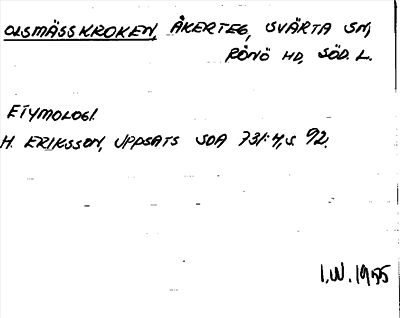 OLSMÄSSKROKEN, ÅKERTEG, SVÄRTA SN,
RÖNÖ HD, SÖD. L.
ETYMOLOGI.
H. ERIKSSON, UPPSATS SOA 731:4, S. 92.
I.W. 1955